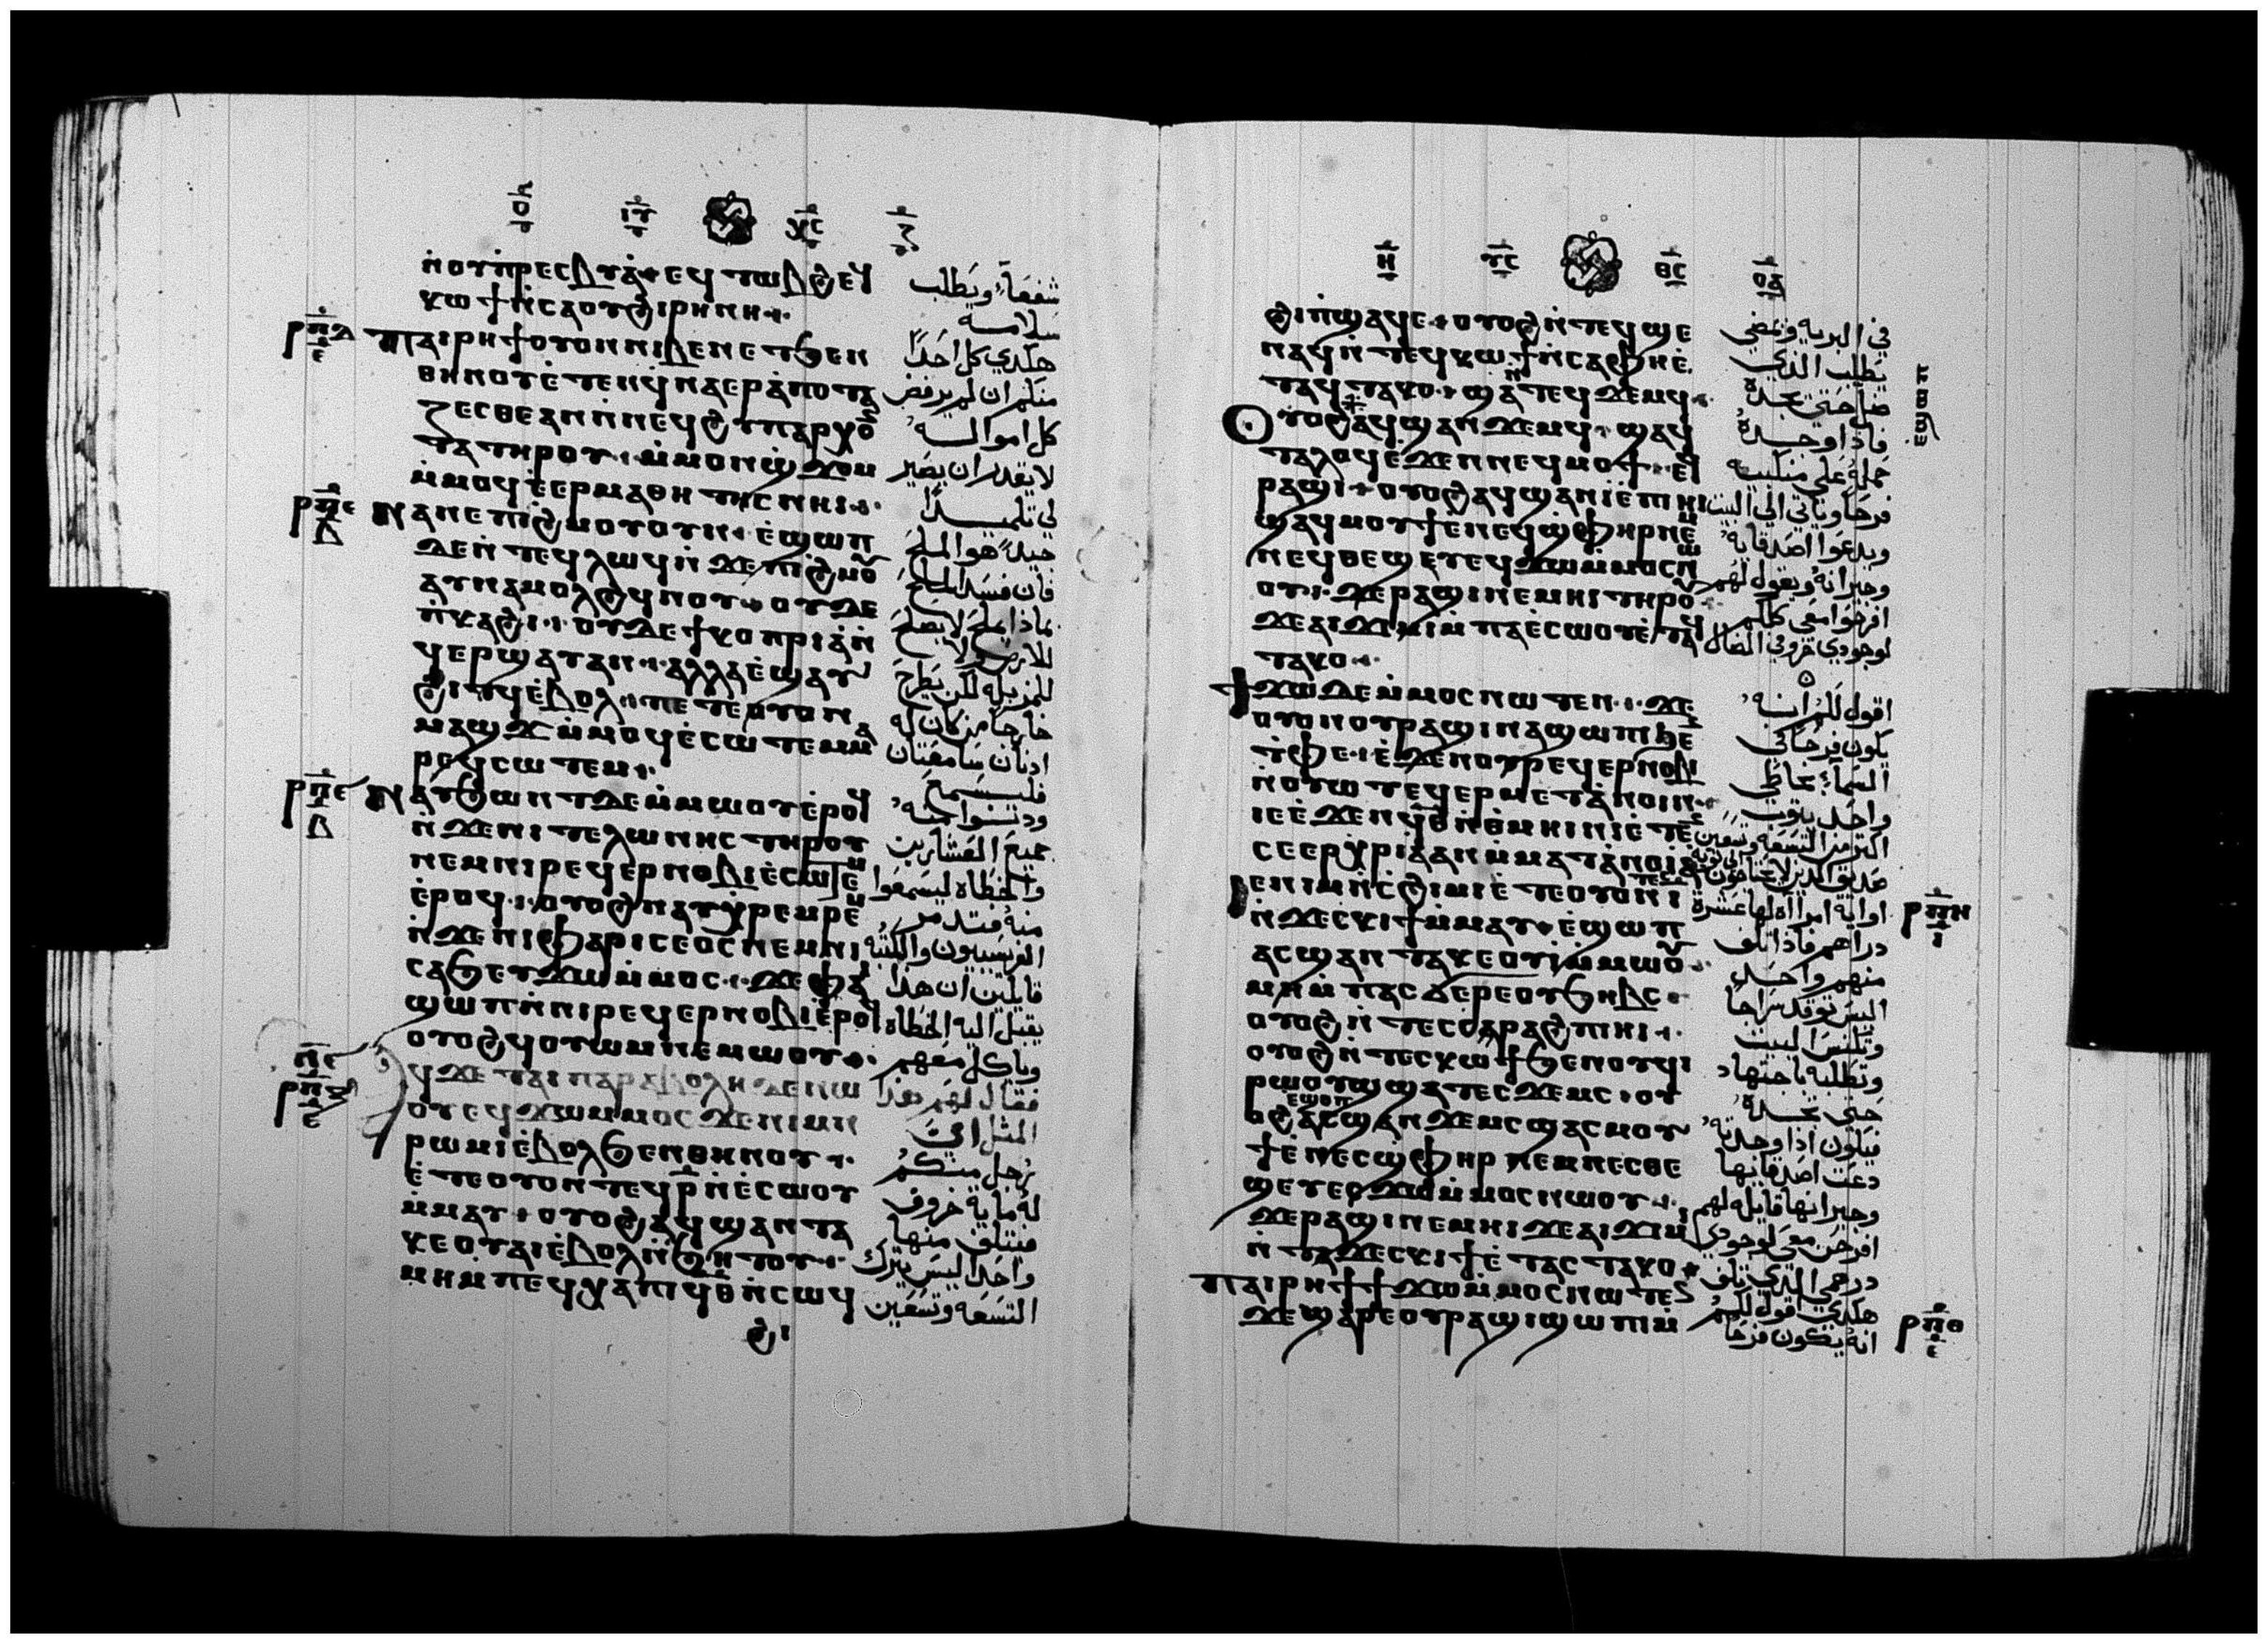 ⲟ̄ ⲓ̅ⲩ̅ ⲭ̅ⲥ̅ ⲍ̄
ⲛ̀ⲟⲩⲡⲣⲉⲥⲃⲩⲁ̀ ⲉϥⲧⲱⲃϩ ⲉϥ شفعاً ويطلب
ⲭⲱϯ ⲛ̀ⲥⲁ ⲟⲩϩⲓⲣⲏⲛⲏ سلامه
ⲡⲁⲓⲣⲏϯ ⲟⲩⲟⲛ ⲛⲓⲃⲉⲛ ⲉⲧϧⲉⲛ هكدي كل احداً
ⲑⲏⲛⲟⲩ ⲉ̀ⲧⲉⲛϥ̀ⲛⲁⲉⲣⲁ̀ⲡⲟⲧⲁ منكم ان لم يرفض
ⲍⲉⲥⲑⲉ ⲁⲛ ⲛ̀ⲛⲉϥϩⲩⲡⲁⲣⲭⲟ̅ كل امواله
ⲧⲁ ⲧⲏⲣⲟⲩ ⲙ̀ⲙⲟⲛ ϣ̀ϫⲟⲙ لا يقدر ان يصير
ⲙ̀ⲙⲟϥ ⲉ̀ⲉⲣⲙⲁⲑⲏⲧⲏⲥ ⲛⲏⲓ لي تلميداً
ⲛⲁⲛⲉ ⲡⲓϩⲙⲟⲩ ⲟⲩⲛ ⲉ̀ϣⲱⲡ جيد هو الملح
ⲇⲉ ⲛ̀ⲧⲉϥⲗⲱϥ ⲛ̀ϫⲉ ⲡⲓϩⲙⲟⲩ فان فسد الملح
ⲁⲩⲛⲁⲙⲟⲗϩϥ ⲛⲟⲩ ⲟⲩⲇⲉ بماذا يملح لا يصلح
ⲡ̀ⲕⲁϩⲓ ⲟⲩⲇⲉ ϯⲕⲟⲡⲣⲓⲁ ⲛ̀ للارض لا
ϥⲉⲣϣⲁⲩ ⲁⲛ ⲁⲗⲗⲁ ⲉ̀ϣⲁⲩ للمزبله لكن يطرح
ϩⲓⲧϥ ⲉ̀ⲃⲟⲗ ⲡⲉⲧⲉⲟⲩⲟⲛ خارجاً من كان له
ⲙⲁϣϫ ⲙ̀ⲙⲟϥ ⲉ̀ⲥⲱⲧⲉⲙ ⲙⲁ ادنان سامعتان
ⲣⲉϥⲥⲱⲧⲉⲙ فليسمع
ⲛⲁⲩϧⲱⲛⲧ ⲇⲉ ⲙ̀ⲙⲱⲟⲩ ⲉ̀ⲣⲟϥ ودنوا منه
ⲛ̀ϫⲉ ⲛⲓⲧⲉⲗⲱⲛⲏⲥ ⲧⲏⲣⲟⲩ جميع العشارين
ⲛⲉⲙ ⲛⲓⲣⲉϥⲉⲣⲛⲟⲃⲓ ⲉ̀ⲥⲱⲧⲉⲙ والخطاه ليسمعوا
ⲉ̀ⲣⲟϥ ⲟⲩⲟϩ ⲛⲁⲩⲭ̀ⲣⲉⲙⲣⲉⲙ منه فتدمر
ⲛ̀ϫⲉ ⲛⲓⲫⲁⲣⲓⲥⲉⲟⲥ ⲛⲉⲙ ⲛⲓ الفريسيون والكتبه
ⲥⲁϧ ⲉⲩϫⲱ ⲙ̀ⲙⲟⲥ ϫⲉ ⲫⲁⲓ قايلين ان هذا
ϣⲱⲡ ⲛ̀ⲛⲓⲣⲉϥⲉⲣⲛⲟⲃⲓ ⲉ̀ⲣⲟϥ يقبل اليه الخطاه
ⲟⲩⲟϩ ϥⲟⲩⲱⲙ ⲛⲉⲙⲱⲟⲩ وياكل معهم
ϥϫⲉ ⲧⲁⲓⲡⲁⲣⲁⲃⲟⲗⲏ ⲇⲉ ⲛⲱ فقال لهم هذا
ⲟⲩ ⲉϥϫⲱ ⲙⲙⲟⲥ ϫⲉ ⲛⲓⲙ ⲛ المثل اي
ⲣⲱⲙⲓ ⲉ̀ⲃⲟⲗ ϧⲉⲛ ⲑⲏⲛⲟⲩ رجل منكم
ⲉ̀ⲧⲉⲟⲩⲟⲛⲧⲉϥ ⲣ̄ ⲛ̀ⲉ̀ⲥⲱⲟⲩ له مايه خروف
ⲙ̀ⲙⲁⲩ ⲟⲩⲟϩ ⲁϥϣⲁⲛⲧⲁ فتلف منها
ⲕⲉ ⲟⲩⲁⲓ ⲉ̀ⲃⲟⲗ ⲛ̀ϧⲏⲧⲟⲩ واحداً ليس يترك
ⲙⲏ ⲙ̀ⲡⲉϥⲭⲁ ⲡⲓϥ̅ⲑ̅ ⲛ̀ⲥⲱϥ التسعه وتسعين
ϩⲓ
ⲣ̅ⲡ̅ⲇ̅ ⲉ
ⲣ̅ⲡ̅ⲉ̅ ⲃ
ⲏ̄ ⲩ̅ⲥ̅ ⲑ̅ⲥ̅ ⲟ̅ⲁ̅
ϩⲓ ⲡ̀ϣⲁϥⲉ ⲟⲩⲟϩ ⲛ̀ⲧⲉϥϣⲉ في البريه ويمضي
ⲛⲁϥ ⲛ̀ⲧⲉϥⲕⲱϯ ⲛ̀ⲥⲁ ⲫⲏ ⲉ̀ يطلب الذي
ⲧⲁϥⲧⲁⲕⲟ ϣⲁⲛⲧⲉϥϫⲉⲙϥ ضل حتى يجده
ⲟⲩⲟϩ ⲁϥϣⲁⲛϫⲉⲙϥ ϣⲁϥ فاذا وجده
ⲧⲁⲗⲟϥ ⲉ̀ϫⲉⲛ ⲛⲉϥⲙⲟϯ ⲉϥ حمله على منكبيه
ⲣⲁϣⲓ ⲟⲩⲟϩ ⲁϥϣⲁⲛⲓ̀ ⲉ̀ⲡⲏⲓ فرحاً وياتي الي البيت
ϣⲁϥⲙⲟⲩϯ ⲉⲛⲉϥϣ̀ⲫⲏⲣ ⲛⲉⲙ ويدعوا اصدقايه
ⲛⲉϥⲑⲉϣⲉⲩ ⲉϥϫⲱ ⲙ̀ⲙⲟⲥ ⲛⲱ وجيرانه ويقول لهم
ⲟⲩ ϫⲉ ⲣⲁϣⲓ ⲛⲉⲙⲏⲓ ⲧⲏⲣⲟⲩ افرحوا معي كلكم
ϫⲉ ⲁⲓϫⲓⲙⲓ ⲙ̀ⲡⲁⲉ̀ⲥⲱⲟⲩ ⲉ̀ⲧⲁϥ لوجودي خروفي الضال
ⲧⲁⲕⲟ
ϯϫⲱ ⲇⲉ ⲙ̀ⲙⲟⲥ ⲛⲱⲧⲉⲛ ϫⲉ اقول لكم انه
ⲟⲩⲟⲛ ⲟⲩⲣⲁϣⲓ ⲛⲁϣⲱⲡⲓ ϧⲉⲛ يكون فرحاً في
ⲧ̀ⲫⲉ ⲉ̀ϫⲉⲛ ⲟⲩⲣⲉϥⲉⲣⲛⲟⲃⲓ السماء بخاطي
ⲛ̀ⲟⲩⲱⲧ ⲉϥⲉⲣⲙⲉⲧⲁⲛⲟⲓⲛ واحد يتوب
ⲓⲉ ⲉ̀ϫⲉⲛ ϥ̅ⲑ̅ ⲛ̀ⲑ̀ⲙⲏⲓ ⲛⲏ ⲉ̀ⲧⲉ اكثر من التسعه وتسعين
ⲥⲉⲉⲣⲭⲣⲓⲁ ⲁⲛ ⲙ̀ⲙⲁⲧⲁⲛⲟⲓⲁ صديق الذين لا يحتاجون الي توبه
ⲉ ⲛⲓⲙ ⲛ̀ⲥϩⲓⲙⲓ ⲉ̀ⲧⲉⲟⲩⲟⲛ ⲓ̅ اوايه امراه لها عشره
ⲛ̀ϫⲉⲥⲕⲓϯ ⲙ̀ⲙⲁⲩ ⲉ̀ϣⲱⲡ دراهم فاذا تلف
ⲁⲥϣⲁⲛⲧⲁⲕⲉ ⲟⲩⲓ̀ ⲙ̀ⲙⲱⲟⲩ منهم واحد
ⲙⲏ ⲙ̀ⲡⲁⲥϭⲉⲣⲉ ⲟⲩϧⲏⲃⲥ اليس توقد سراجاً
ⲟⲩⲟϩ ⲛ̀ⲧⲉⲥⲥⲁⲣⲁϩ ⲡⲓⲏⲓ وتكنس البيت
ⲟⲩⲟϩ ⲛ̀ⲧⲉⲥⲕⲱϯ ϧⲉⲛ ⲟⲩϥⲓ وتطلبه باجتهاد
ⲣⲱⲟⲩϣ ϣⲁⲧⲉⲥϫⲉⲙⲥ ⲟⲩ حتى تجده
ⲟϩ ⲉϣⲱⲡ ⲁⲥϣⲁⲛϫⲉⲙⲥ ϣⲁⲥⲙⲟⲩ فيكون اذا وجدته
ϯ ⲉ̀ⲛⲉⲥϣ̀ⲫⲏⲣ ⲛⲉⲙ ⲛⲉⲥⲑⲉ دعت اصدقايها
ϣⲉⲩ ⲉⲥϫⲱ ⲙ̀ⲙⲟⲥ ⲛⲱⲟⲩ وجيرانها قايله لهم
ϫⲉ ⲣⲁϣⲓ ⲛⲉⲙⲏⲓ ϫⲉ ⲁⲓϫⲓⲙⲓ افرحن معي لوجودي
ⲛ̀ⲧⲁϫⲉⲥⲕⲓϯ ⲉ̀ⲧⲁⲥⲧⲁⲕⲟ درهمي الذي تلف
ⲡⲁⲓⲣⲏϯ ϯϫⲱ ⲙ̀ⲙⲟⲥ ⲛⲱⲧⲉⲛ هكدي اقول لكم
ϫⲉ ϣⲁⲣⲉ ⲟⲩⲣⲁϣⲓ ϣⲱⲡⲓ ⲙ انه يكون فرحاً
ⲉϣⲱⲡ
ⲣ̅ⲡ̅ⲏ̅ ⲓ
ⲣ̅ⲡ̅ⲑ̅ ⲉ